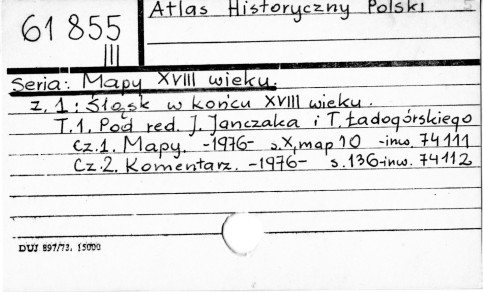 Atlas Historyczny Polski 5
61 855
III
Seria: Mapy XVIII wieku.
z. 1: Śląsk w końcu XVIII wieku.
T.1. Pod red. J. Janczaka i T. Ładogórskiego
Cz.1. Mapy. -1976- s.X, map 10 -inw. 74111
Cz.2. Komentarz. -1976- s.136-inw. 74112
DUJ 897/73. 15000